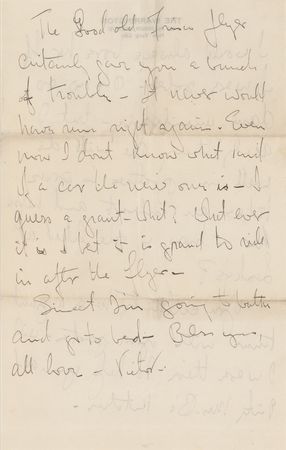 The Good old 
certainly gave you a bunch
of trouble - It never would
have run right again. Even
now I dont know what kind
of a car the new one is - I
guess a grant - what? What ever
it is I bet it is grand to ride
in after the flyer -
Sweet I'm going to bathe
and go to bed - Bless you,
all love - Victor -